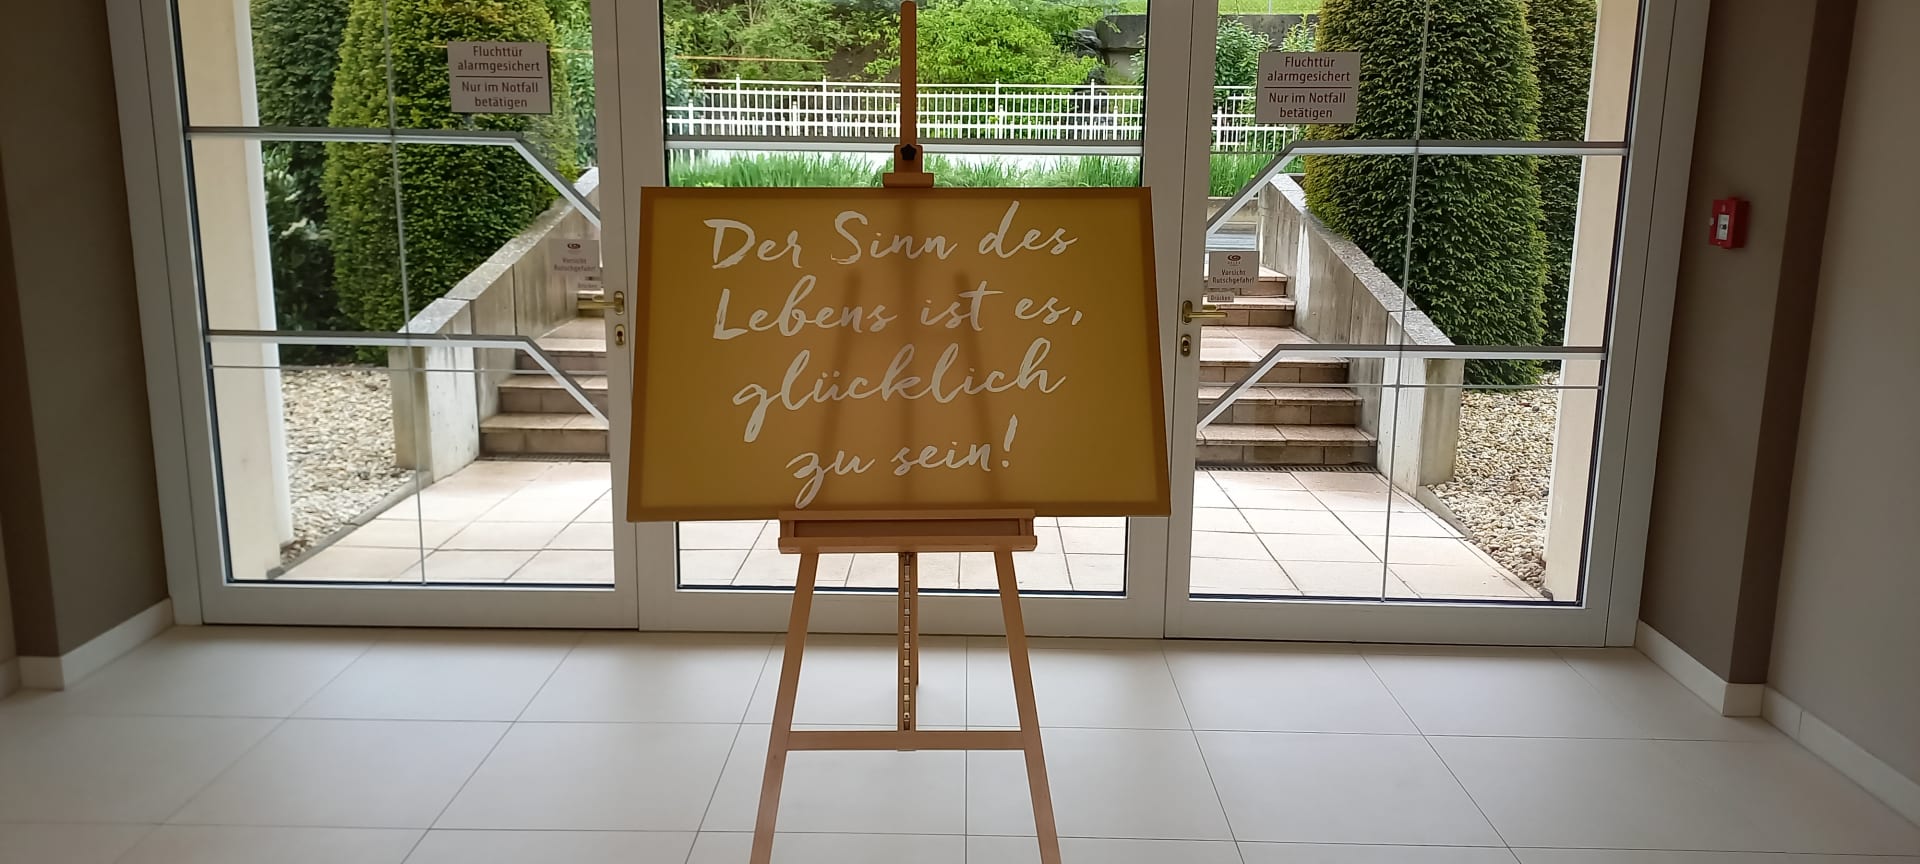 Fluchttür
alarmgesichert
Nur im Notfall
betätigen
Fluchttür
alarmgesichert
Nur im Notfall
betätigen
Der Sinn des
Lebens ist es,
glücklich
zu sein!
Vorsicht
Rutschgefahr!
Drücken
Vorsicht
Rutschgefahr!
Drücken